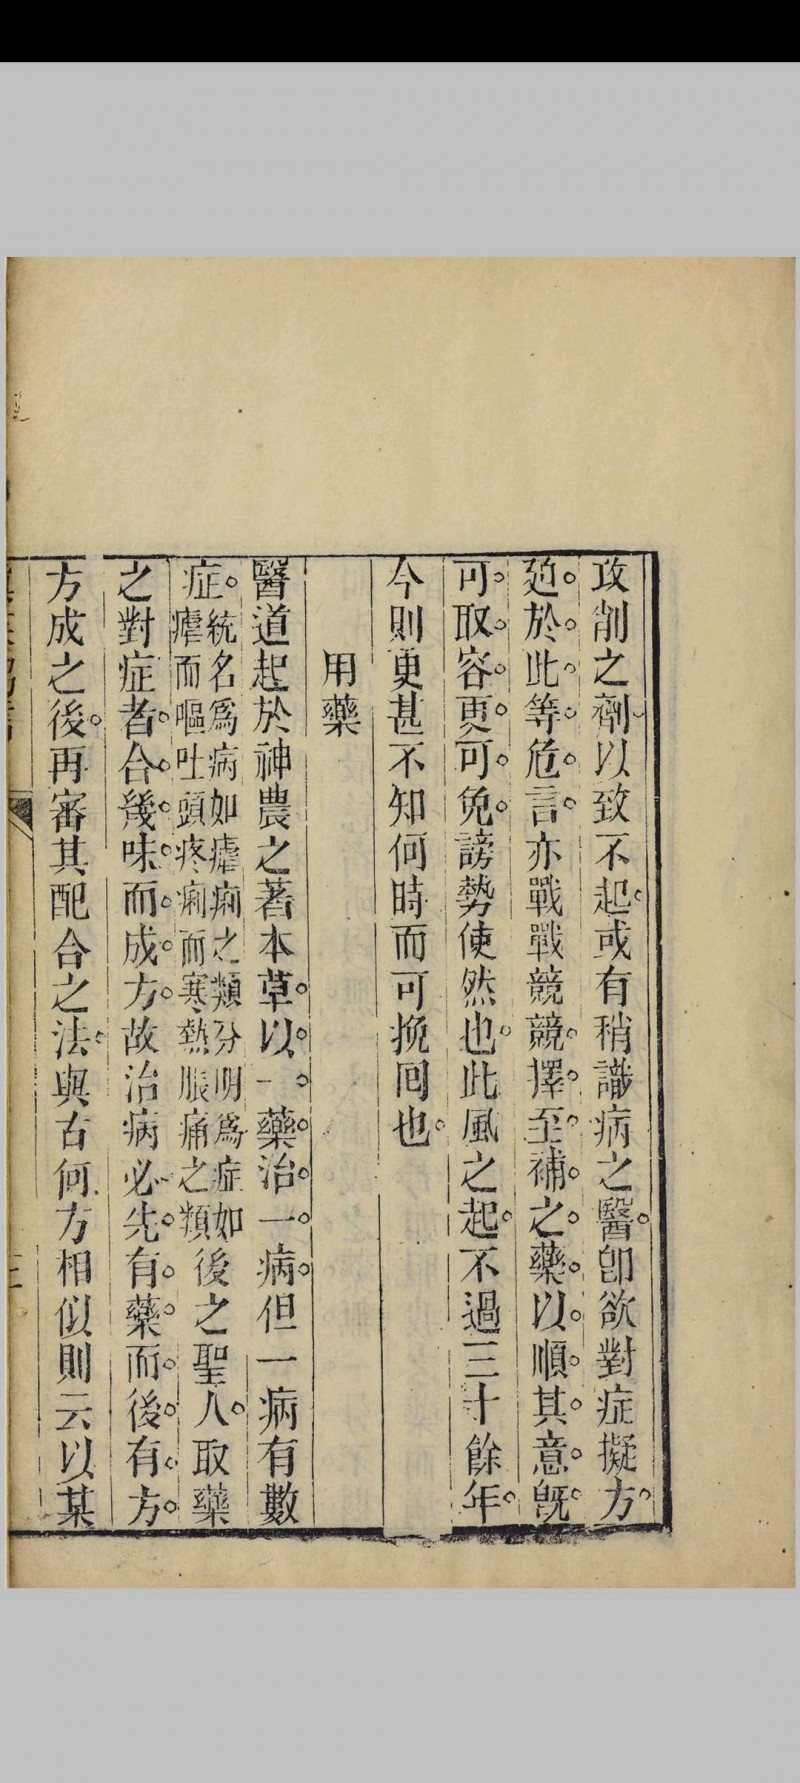 攻削之劑以致不起。或有稍識病之醫。卽欲對症擬方。
廹於此等危言。亦戰戰競競。擇至補之藥。以順其意。旣
可取容。更可免謗。勢使然也。此風之起。不過三十餘年。
今則更甚不知何時而可挽回也。
用藥
醫道起於神農之著本草。以一藥治一病。但一病有數
症。統名爲病如瘧痢之類分明爲症如瘧而嘔吐頭疼痢而寒熱脹痛之類後之聖人。取藥
之對症者。合幾味而成方。故治病必先有藥而後有方。
方成之後。再審其配合之法。與古何方相似則云以某